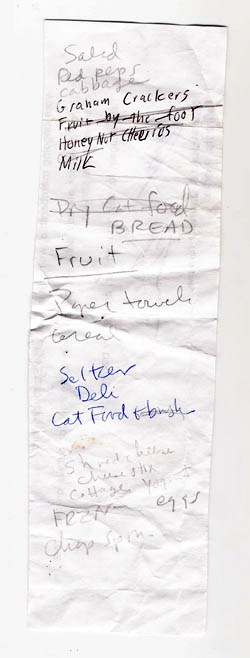 Salad
Red peps
cabbage
Graham Crackers
Fruit by the foot
Honey Nut Cheerios
Milk
Dry Cat food
BREAD
Fruit
Paper towels
Cereal
Seltzer
Deli
Cat Food
Shred cheese
cheese stix
Cottage Yogurt
FRZN
eggs